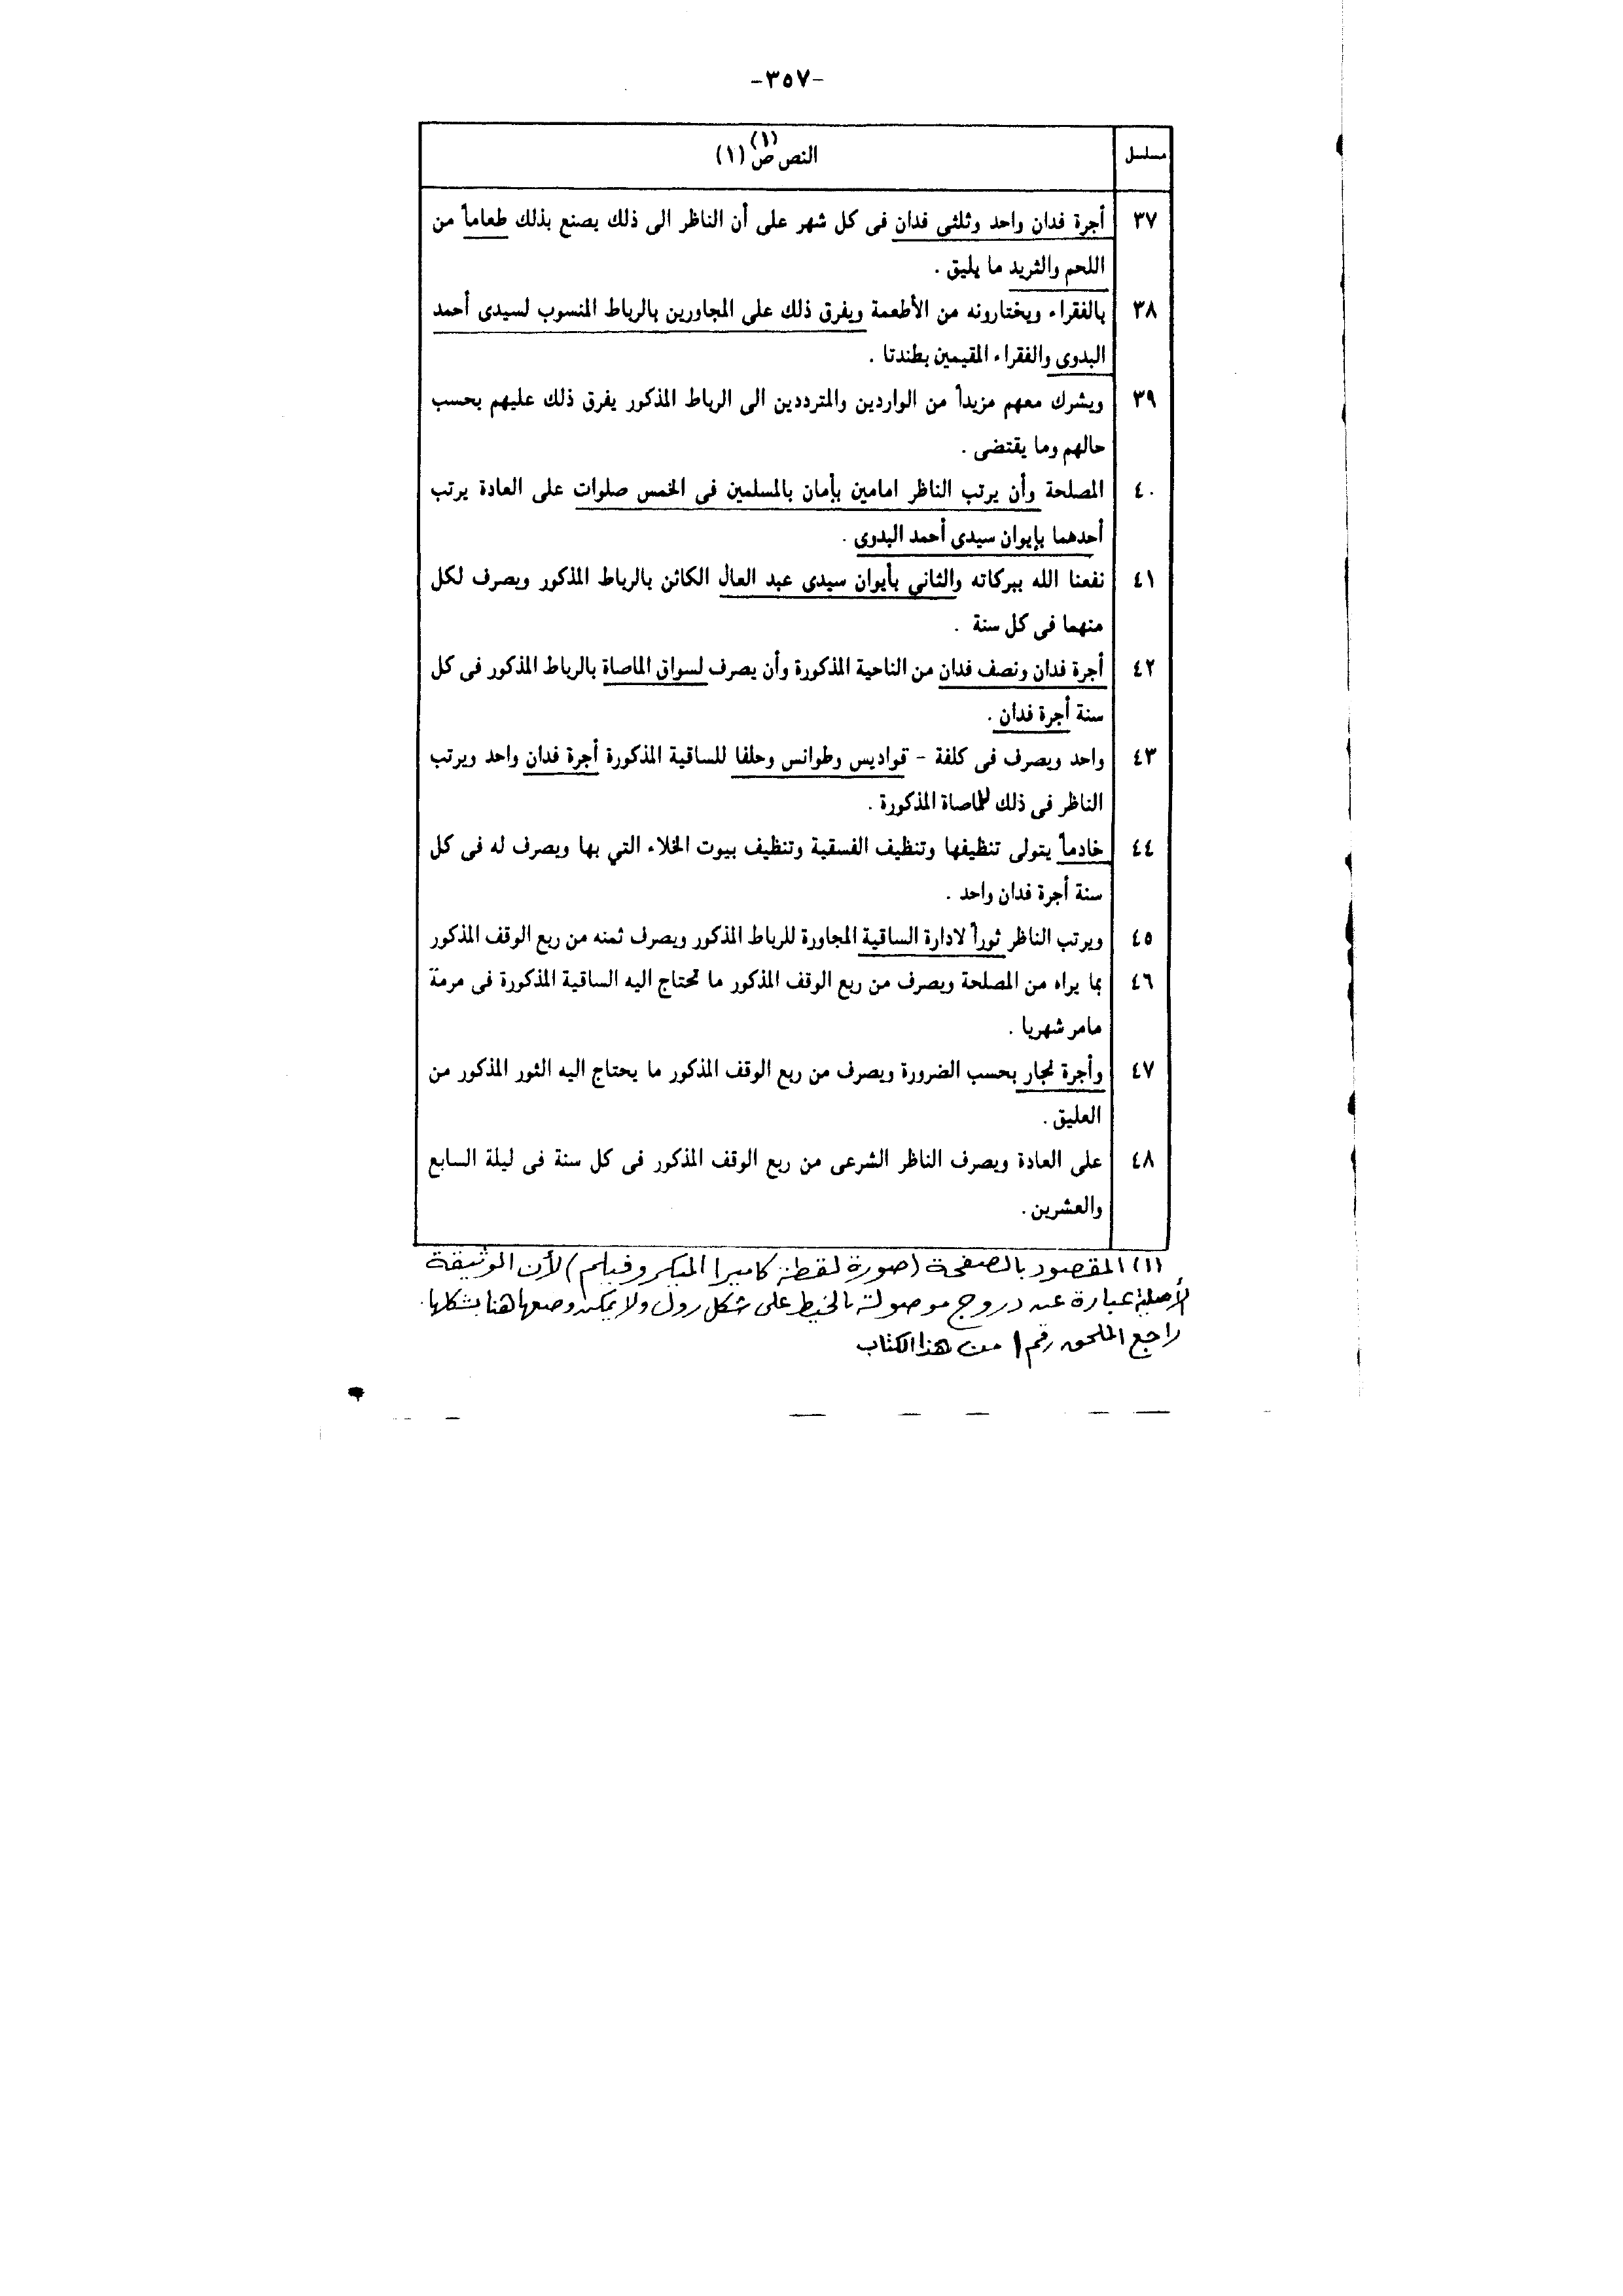 -٣٥٧-
مسلسل
النص ص(١) (١)
٣٧ أجرة فدان واحد وثلثى فدان فى كل شهر على أن الناظر الى ذلك يصنع بذلك طعاماً من
اللحم والثريد ما يليق .
٣٨ بالفقراء ويختارونه من الأطعمة ويفرق ذلك على المجاورين بالرباط المنسوب لسيدى أحمد
البدوى والفقراء المقيمين بطندتا .
٣٩ ويشرك معهم مزيداً من الواردين والمترددين الى الرباط المذكور يفرق ذلك عليهم بحسب
حالهم وما يقتضى .
٤٠ المصلحة وأن يرتب الناظر امامين بأمان بالمسلمين فى الخمس صلوات على العادة يرتب
أحدهما بإيوان سيدى أحمد البدوى .
٤١ نفعنا الله ببركاته والثانى بأيوان سيدى عبد العال الكائن بالرباط المذكور ويصرف لكل
منهما فى كل سنة .
٤٢ أجرة فدان ونصف فدان من الناحية المذكورة وأن يصرف لسواق الماصاة بالرباط المذكور فى كل
سنة أجرة فدان .
٤٣ واحد ويصرف فى كلفة - قواديس وطوانس وحلفا للساقية المذكورة أجرة فدان واحد ويرتب
الناظر فى ذلك للماصاة المذكورة .
٤٤ خادماً يتولى تنظيفها وتنظيف الفسقية وتنظيف بيوت الخلاء التي بها ويصرف له فى كل
سنة أجرة فدان واحد .
٤٥ ويرتب الناظر ثوراً لادارة الساقية المجاورة للرباط المذكور ويصرف ثمنه من ربع الوقف المذكور
٤٦ بما يراه من المصلحة ويصرف من ربع الوقف المذكور ما تحتاج اليه الساقية المذكورة فى مرمة
مامر شهريا .
٤٧ وأجرة نجار بحسب الضرورة ويصرف من ربع الوقف المذكور ما يحتاج اليه الثور المذكور من
العليق .
٤٨ على العادة ويصرف الناظر الشرعى من ربع الوقف المذكور فى كل سنة فى ليلة السابع
والعشرين .
(١) المقصود بالصفحة (صورة لقطة كاميرا الميكروفيلم) لأن الوثيقة
الأصلية عبارة عن دروج موصولة بالخيط على شكل رول ولا يمكن وضعها هنا بشكلها.
راجع الملحق رقم ١ من هذا الكتاب